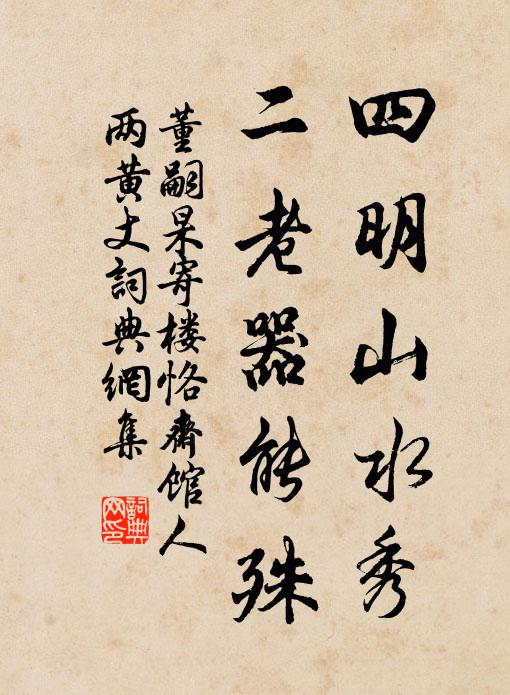 四明山水秀
二老器能殊
董嗣杲寄楼恪斋馆人
两黄丈詞典網集
詞典网印